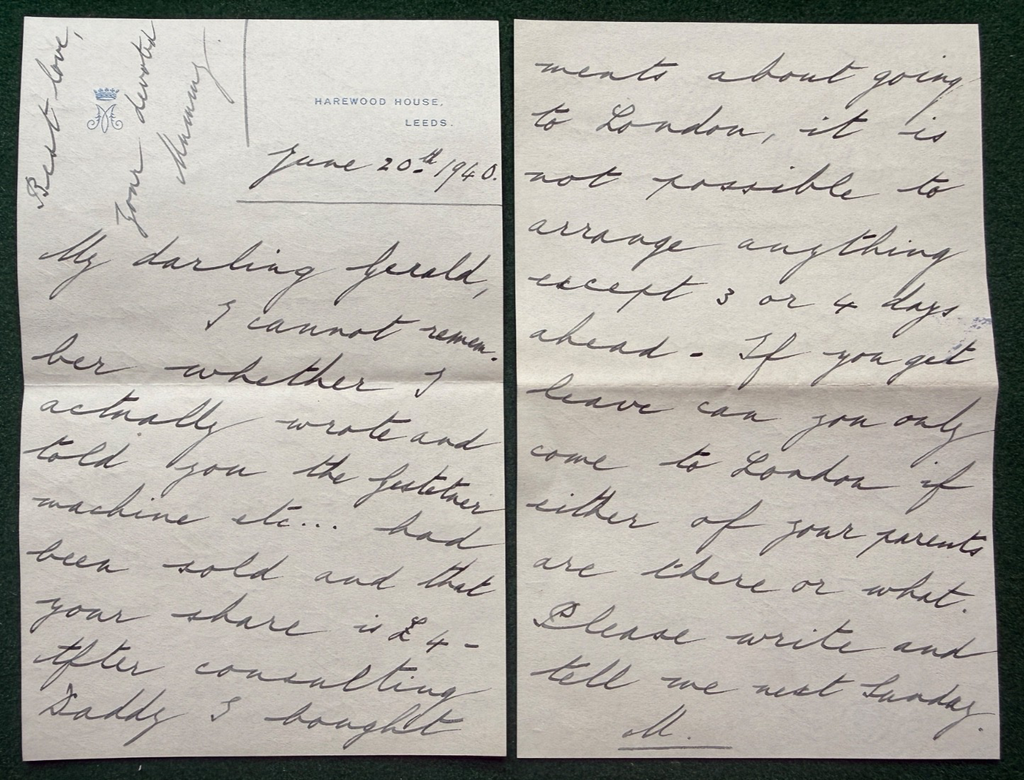 Best love,
your devoted
Mummy.
HAREWOOD HOUSE,
LEEDS.
June 20th 1940.
My darling Gerald,
I cannot remem-
ber whether I
actually wrote and
told you the gestetner
machine etc... had
been sold and that
your share is £4-
After consulting
Daddy I bought
ments about going
to London, it is
not possible to
arrange anything
except 3 or 4 days
ahead - If you get
leave can you only
come to London if
either of your parents
are there or what.
Please write and
tell me next Sunday.
M.